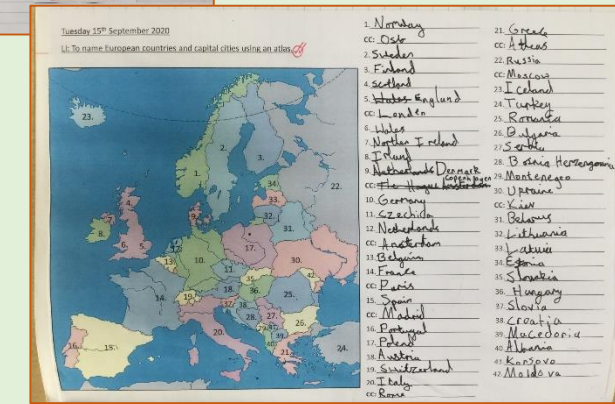 Tuesday 15th September 2020
LI: To name European countries and capital cities using an atlas.
23.
2.
3.
1.
22.
34.
33.
4.
9.
32.
31.
8.
6.
5.
12.
10.
17.
13.
11.
30.
35.
42.
14.
18.
36.
19.
37.
25.
38.
28.
27.
20.
29.
26.
39.
40.
16.
15.
21.
24.
1. Norway
CC: Oslo
2. Sweden
3. Finland
4. Scotland
5. Wales England
CC: London
6. Wales
7. Northan Ireland
8. Irland
9. Netherlands Denmark
Copenhagen
CC: The Hague Amsterdam
10. Germany
11. Czechida
12. Netherlands
CC: Amsterdam
13. Belguim
14. France
CC: Paris
15. Spain
CC: Madrid
16. Portugal
17. Poland
18. Austria
19. Switzerland
20. Italy
CC: Rome
21. Greece
CC: Athens
22. Russia
CC: Moscow
23. Iceland
24. Turkey
25. Romania
26. Bulgaria
27. Serbia
28. Bosnia Herzengovina
29. Montenegro
30. Ukraine
CC: Kiev
31. Belarus
32. Lithuania
33. Latvia
34. Estonia
35. Slovakia
36. Hungary
37. Slovia
38. Croatia
39. Macedonia
40. Albania
41. Konsovo
42. Moldova